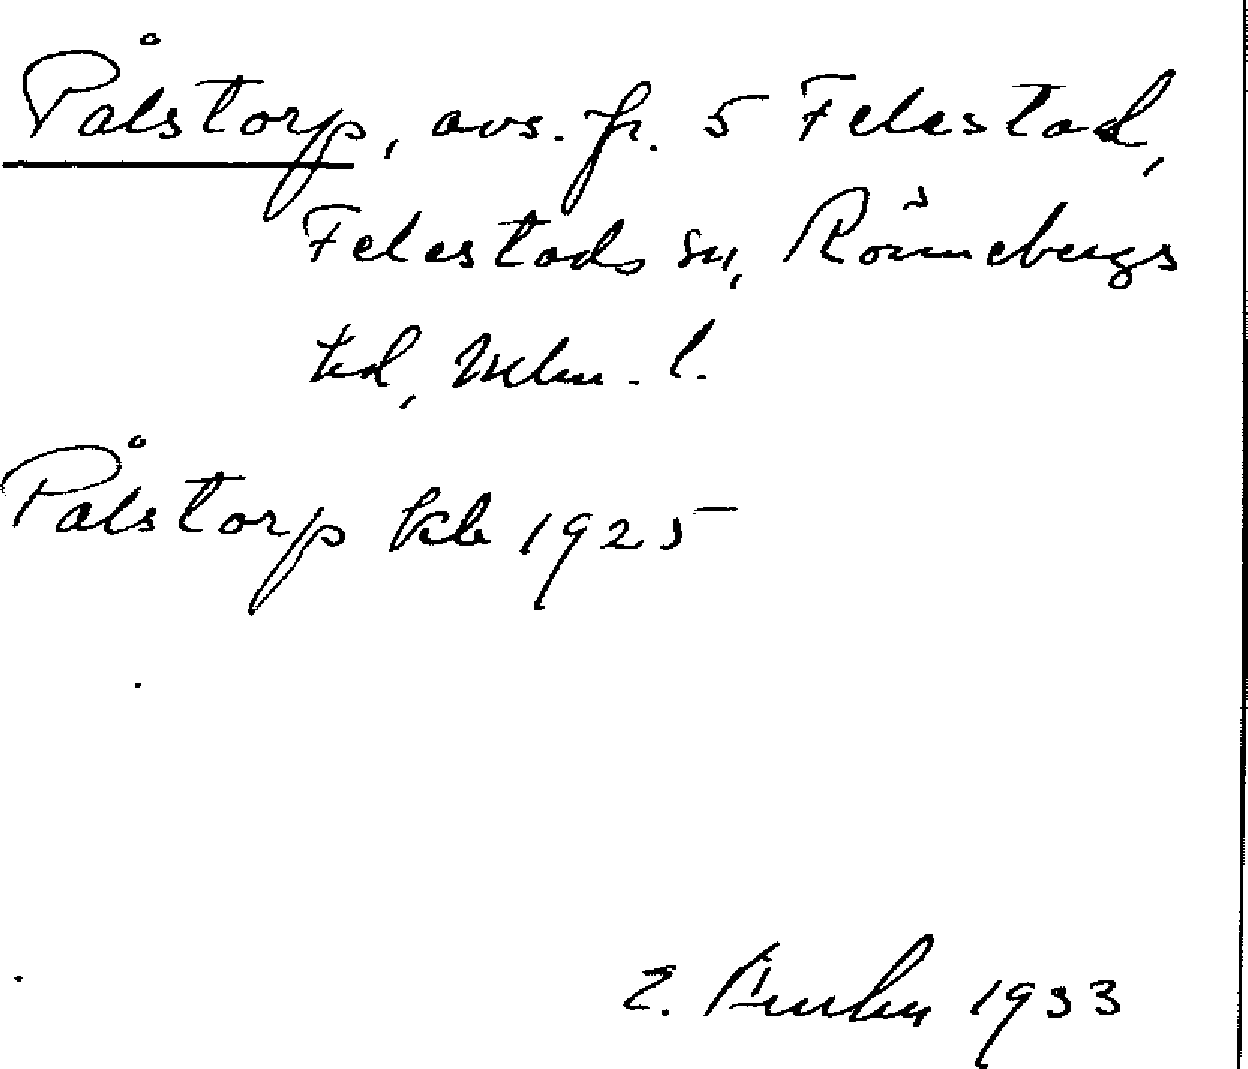 Pålstorp, avs. fr. 5 Felestad,
Felestads sn, Rönnebergs
hd, Mlm. l.
Pålstorp kb 1925
1933